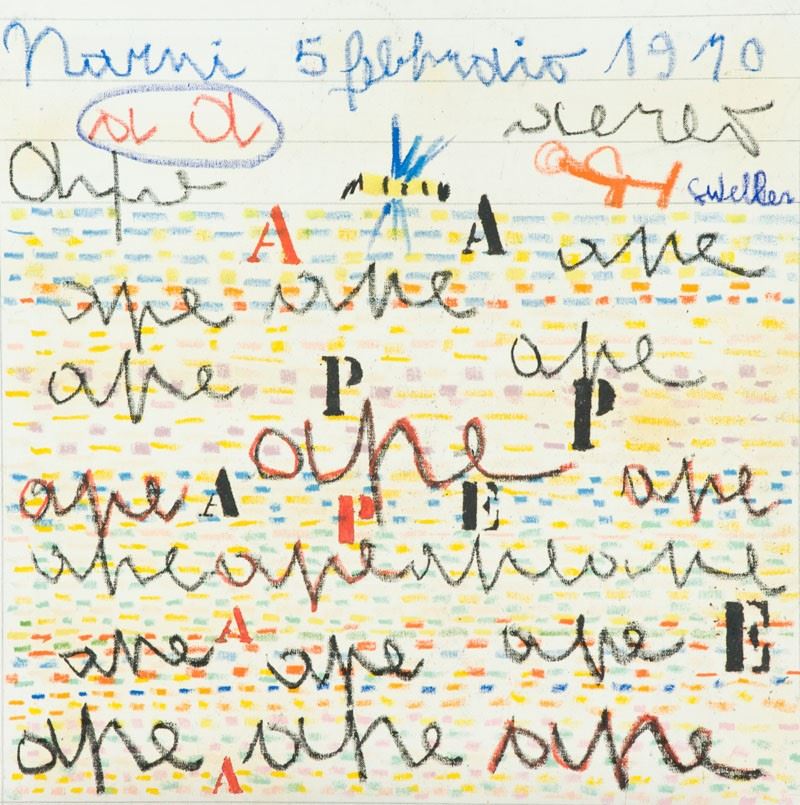 Narni 5 febbraio 1970
a a aereo
Ape sweller
A A ape
ape ape
ape
ape P P
ape
ape A P E ape
apeapeapeape
A
ape ape ape E
ape ape ape
A